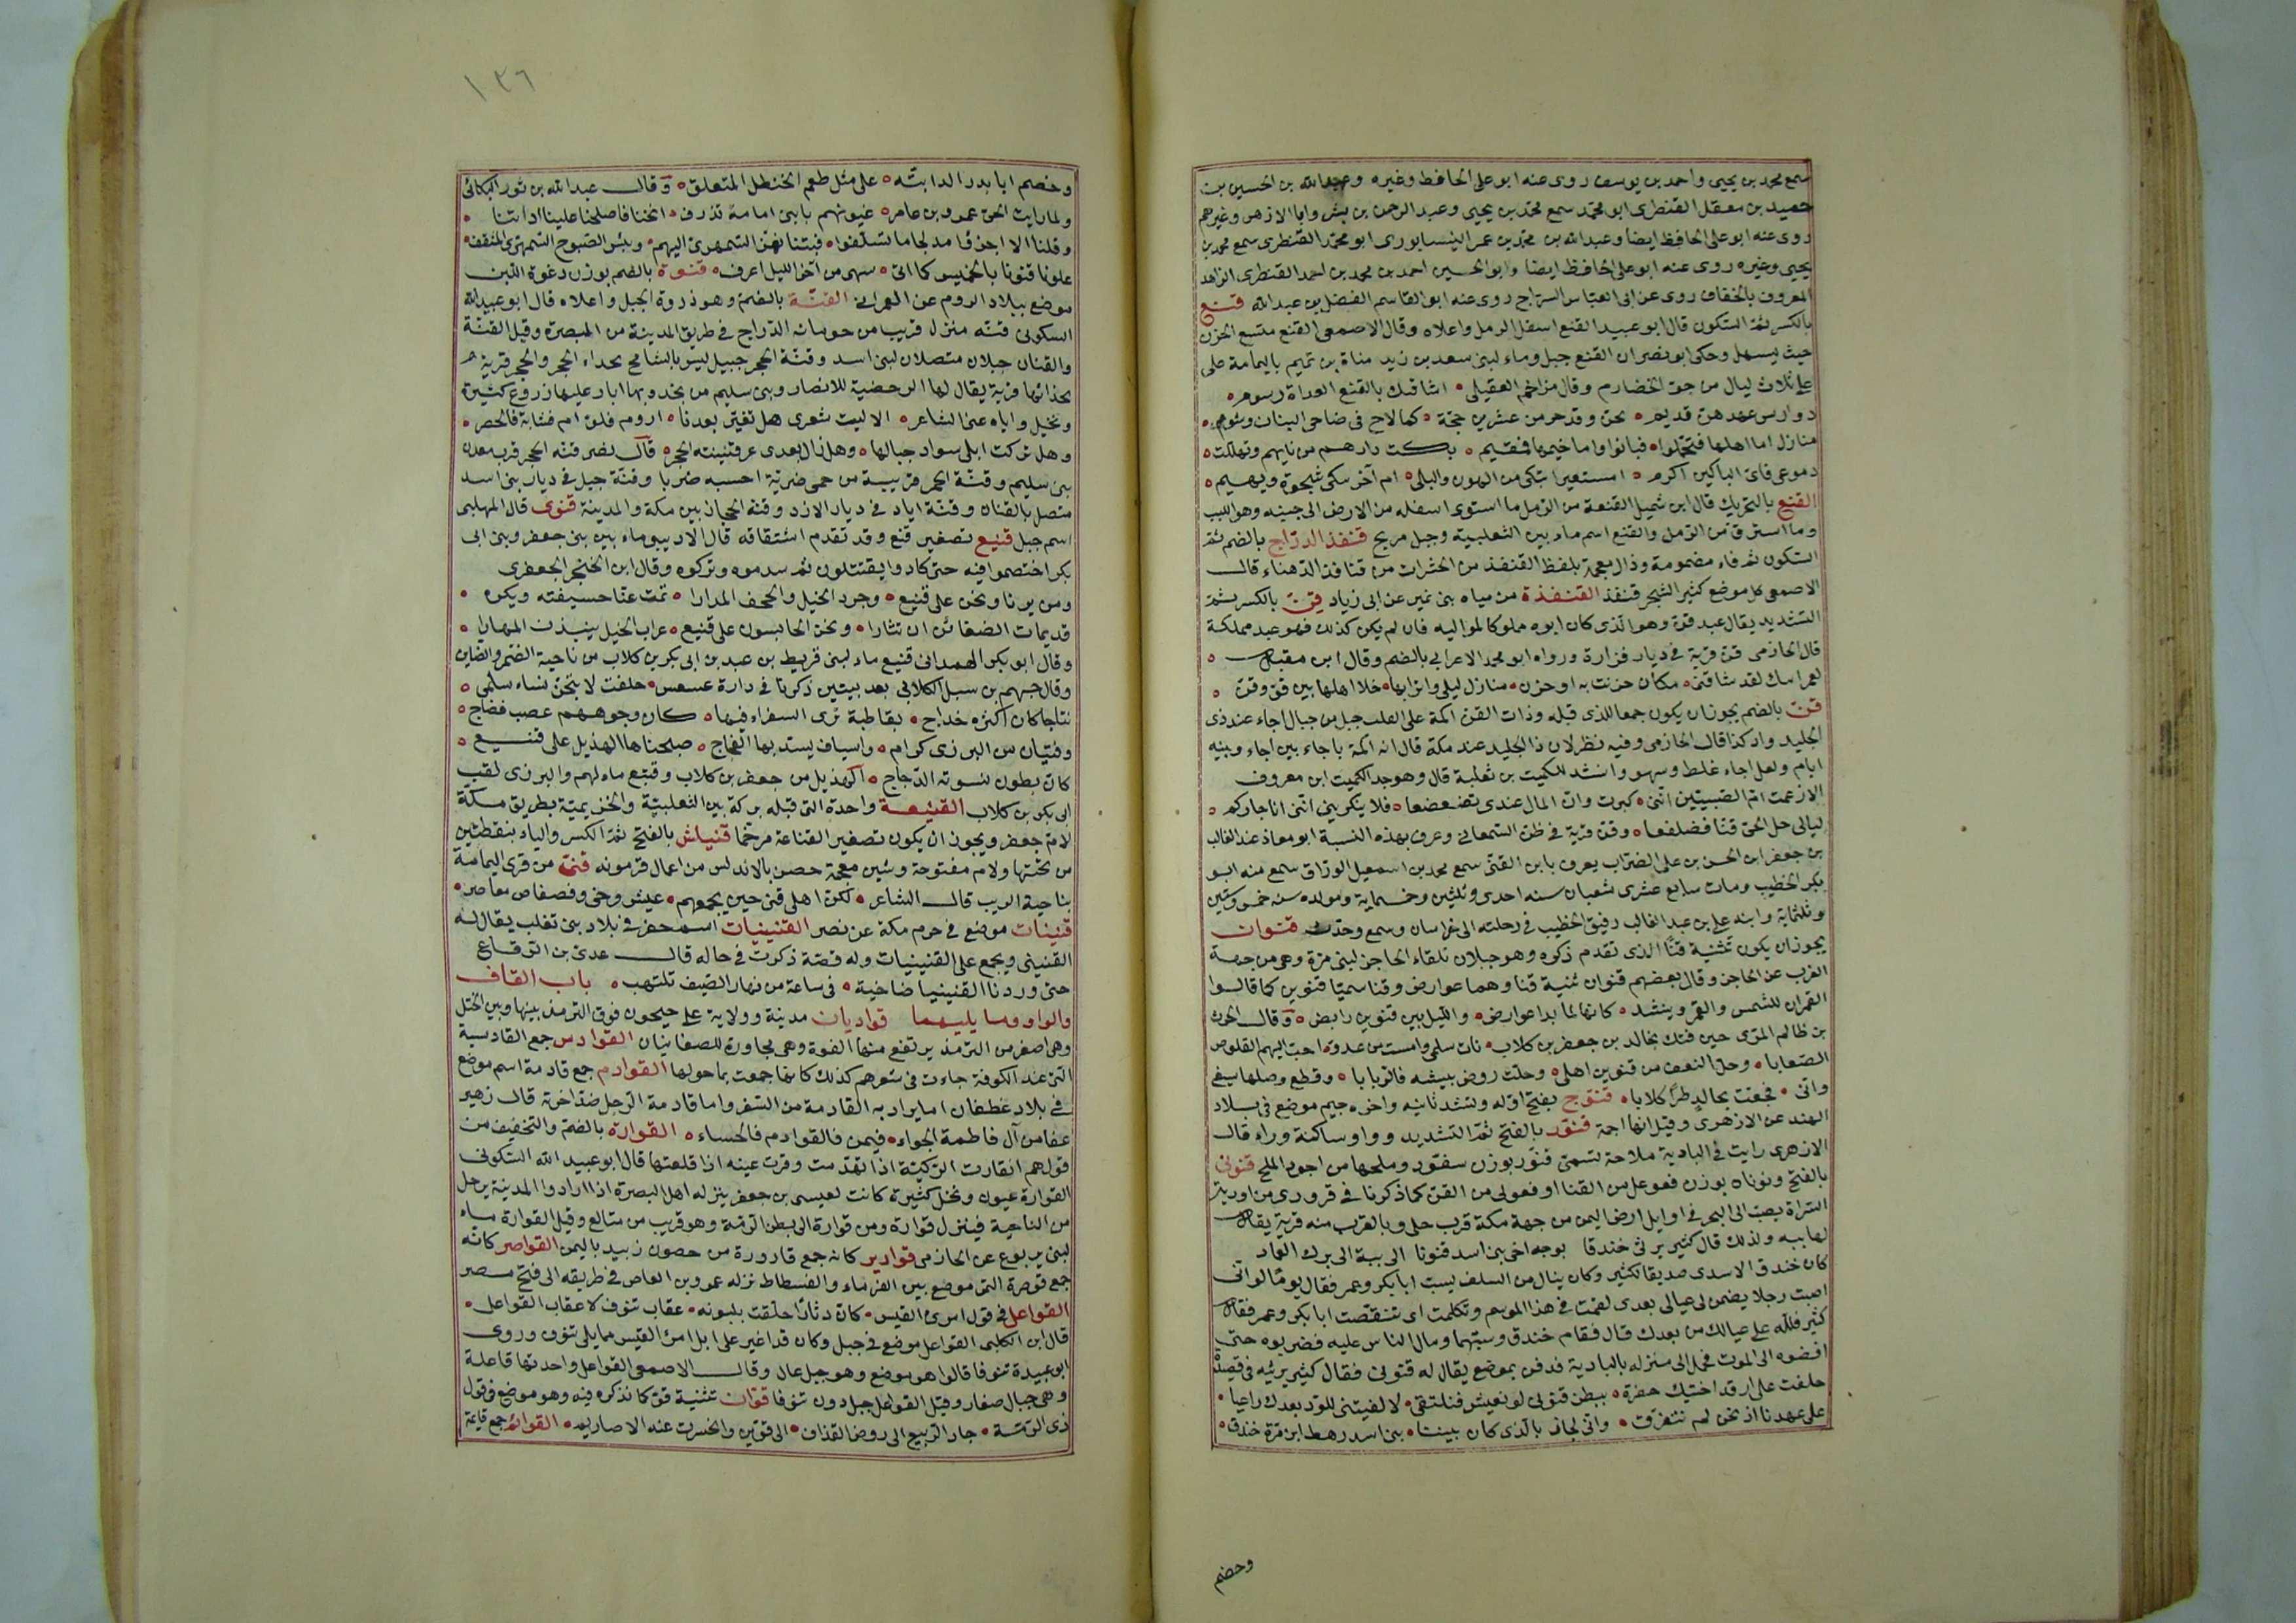 سمع محمد بن يحيى واحمد بن يوسف روى عنه ابو على الحافظ وغيره وعبد الله بن الحسين بن
حميد بن معقل القنطرى ابو محمد سمع محمد بن يحيى وعبد الرحمن بن بشر وابا الازهر وغيرهم
روى عنه ابو على الحافظ ايضا وعبد الله بن محمد بن عمر النيسابورى ابو محمد القنطرى سمع محمد بن
يحيى وغيره روى عنه ابو على الحافظ ايضا وابو الحسين احمد بن محمد بن احمد القنطرى الزاهد
المعروف بالخفاف روى عن ابى العباس السراج روى عنه ابو القاسم الفضل بن عبد الله قنع
بالكسر ثم السكون قال ابو عبيد القنع اسفل الرمل واعلاه وقال الاصمعى القنع متسع الحزن
حيث يسهل وحكى ابو نصر ان القنع جبل وماء لبنى سعد بن زيد مناة بن تميم باليمامة على
على ثلاث ليال من جو الخضارم وقال مزاحم العقيلى اشاقتك بالقنع الغداة رسوم
دوارس عهدهن قديم نحن وقد جرمن عشرين حجة كما لاح فى ضاحى البنان وشوم
منازل اما اهلها فتحملوا فبانوا واما خيمها فمقيم بكت دارهم من نايهم وتهللت
دموعى فاى الباكين اكرم امستعبرا يبكى من الهون والبلى ام آخر يبكى شجوه ويهيم
القنع بالتحريك قال ابن شميل القنعة من الرمل ما استوى اسفله من الارض الى جنبه وهو اللبب
وما استرق من الرمل والقنع اسم ماء بين الثعلبية وجبل مريخ قنفذ الدراج بالضم ثم
السكون ثم فاء مضمومة وذال معجمة بلفظ القنفذ من الحشرات من قنافذ الدهناء قال
الاصمعى كل موضع كثير الشجر قنفذ القنفذة من مياه بنى نمير عن ابى زياد قن بالكسر ثم
التشديد يقال عبد قن وهو الذى كان ابوه مملوكا لمواليه فان لم يكن كذلك فهو عبد مملكة
قال الحازمى قن قرية فى ديار فزارة ورواه ابو محمد الاعرابى بالضم وقال ابن مقبل
لعمر ابيك لقد شاقنى مكان حزنت به او حزن منازل ليلى واترابها خلا اهلها بين قو وقن
قن بالضم يجوز ان يكون جمعا للذى قبله وذات القن اكمة على القلب جبل من جبال اجاء عند ذى
الجليل واد كذا قال الحازمى وفيه نظر لان ذا الجليل عند مكة قال انه اكمة باجاء بين اجاء وبينه
ايام ولعل اجاء غلط وسهو وانشد للكميت بن ثعلبة قال وهو جد الكميت ابن معروف
الا زعمت ام الصبيين اننى كبرت وان المال عندى تضعضعا فلا ينكرينى اننى انا جاركم
ليالى حل الحى قنا فضلفعا وقن قرية فى ظن السمعانى وعرف بهذه النسبة ابو معاذ عبد الغالب
بن جعفر ابن الحسن بن على الضراب يعرف بابن القنى سمع محمد بن اسمعيل الوراق سمع منه ابو
بكر الخطيب ومات سابع عشرى شعبان سنه احدى وثلثين وخمسماية ومولده سنه خمس وستين
وثلثماية وابنه على بن عبد الغالب رفيق الخطيب فى رحلته الى خراسان وسمع وحدث قنوان
يجوز ان يكون تثنية قنا الذى تقدم ذكره وهو جبلان تلقاء الحاجز لبنى مرة وهى من جهة
الغرب عن الحاجز وقال بعضهم قنوان تثنية قنا وهما عوارض وقنا سميا قنوين كما قالوا
القمران للشمس والقمر وينشد كانها لما بدا عوارض والليل بين قنوين رابض وقال الحرث
بن ظالم المرى حين فتك بخالد بن جعفر بن كلاب نات سلمى وامست من عدو احث اليهم القلوص
الصعابا وحل النعف من قنوين اهلى وحلت روض بيشه فالربابا وقطع وصلها سيفى
وانى فجعت بخالد طرا كلابا قنوج بفتح اوله وتشديد ثانيه واخره جيم موضع فى بلاد
الهند عن الازهرى وقيل انها اجمة قنور بالفتح ثم التشديد وواو ساكنة وراء قال
الازهرى رايت فى البادية ملاحة تسمى قنور بوزن سفود وملحها من اجود الملح قنونى
بالفتح ونوناه بوزن فعوعل من القنا او فعولى من القن كما ذكرنا فى قرورى من اودية
السراة يصب الى البحر فى اوايل ارض اليمن من جهة مكة قرب حلى وبالقرب منه قرية يقال
لها يبه ولذلك قال كثير يرثى خندقا بوجه اخى بنى اسد قنونا الى يبة الى برك الغماد
كان خندق الاسدى صديقا لكثير وكان ينال من السلف يسب ابا بكر وعمر فقال يوما لو انى
اصبت رجلا يضمن لى عيالى بعدى لقمت فى هذا الموسم وتكلمت اى تنقصت ابا بكر وعمر فقال
كثير فلله على عيالك من بعدك قال فقام خندق وسبهما ومال الناس عليه فضربوه حتى
افضوه الى الموت فحمل الى منزله بالبادية فدفن بموضع يقال له قنونى فقال كثير يرثيه فى قصيدة
حلفت على ان قد اجنتك حفرة ببطن قنونى لو نعيش فنلتقى لالفيتنى للود بعدك راعيا
على عهدنا اذ نحن لم نتفرق وانى لجاز بالذى كان بيننا بنى اسد رهط ابن مرة خندق
وخصم
١٣٦
وخصم ابا بدر الدا بته على مثل طعم الحنظل المتعلق وقال عبد الله بن ثور البكائى
ولما رايت الحى عمرو بن عامر عيونهم بابنى امامة تذرف انخنا فاصلحنا علينا اداتنا
وقلنا الا اجزوا مدلجا ما تسلفوا فبتنا نهز السمهرى اليهم وبئس الصبوح السمهرى المثقف
علونا قنونا بالخميس كما اتى سهى من آخر الليل اعرف قنوة بالضم بوزن دغوة اللبن
موضع ببلاد الروم عن العمرانى القنة بالضم وهو ذروة الجبل واعلاه قال ابو عبيد الله
السكونى قنة منزل قريب من حومانة الدراج فى طريق المدينة من البصرة وقيل القنة
والقنان جبلان متصلان لبنى اسد وقنة الحجر جبيل ليس بالشامخ بحذاء الحجر والحجر قرية
بحذائها قرية يقال لها الرحضية للانصار وبنى سليم من نجد وبها ابار عليها زروع كثيرة
ونخيل واياه عنى الشاعر الا ليت شعرى هل تغير بعدنا اروم فلوى ام فشابة فالحضر
وهل تركت ابلى سواد جبالها وهل زال بعدى عن قنينته الحجر قال نصر قنة الحجر قرب معدن
بنى سليم وقنة الحمر قريبة من حمى ضرية احسبه ضربا وقنة جبل فى ديار بنى اسد
متصل بالقنان وقنة اياد فى ديار الازد وقنة الحجاز بين مكة والمدينة قنوى قال المهلبى
اسم جبل قنيع تصغير قنع وقد تقدم اشتقاقه قال الاديبى ماء بين بنى جعفر وبنى ابى
بكر اختصموا فيه حتى كادوا يقتتلون ثم سدموه وتركوه وقال ابن الخنجر الجعفرى
ومن يرنا ونحن على قنيع وجرد الخيل والجحف المدارا تمت عنا حسيفته ويكره
قديمات الضغائن ان تثارا ونحن الحابسون على قنيع عراب الخيل ينبذن المهارا
وقال ابو بكر الهمدانى قنيع ماء لبنى قريط بن عبد بن ابى بكر بن كلاب من ناحية الضمر والضاين
وقال جهم بن سبل الكلابى بعد بيتين ذكرنا فى دارة عسعس حلفت لانتجن نساء سلمى
نتاجا كان اكثره خداج بقاطبة ترى السفراء فيها كان وجوههم عصب فضاج
وفتيان من البزرى كرام واسياف يسد بها الفجاج صبحناها الهذيل على قنيع
كان بطون نسوته الدجاج الهذيل من جعفر بن كلاب وقنيع ماء لهم والبزرى لقب
ابى بكر بن كلاب القنيعة واحدة التى قبله بركة بين الثعلبية والخزيمية بطريق مكة
لام جعفر ويجوز ان يكون تصغير القناعة مرخما قنيلش بالفتح ثم الكسر والياء بنقطتين
من تحتها ولام مفتوحة وشين معجمة حصن بالاندلس من اعمال قرمونه قنى من قرى اليمامة
بناحية الريب قال الشاعر لكن اهلى قنى حين يجمعهم عيش وخى وفصفاص معاصر
قنينات موضع فى حرم مكة عن نصر القنينيات اسم حفر فى بلاد بنى تغلب يقال له
القنينى ويجمع على القنينيات وله قصة ذكرت فى حاله قال عدى بن الرقاع
حتى وردنا القنينيا ضاحية فى ساعة من نهار الصيف تلتهب باب القاف
والواو وما يليهما قواديان مدينة وولاية على جيحون فوق الترمذ بينها وبين الختل
وهى اصغر من الترمذ يرتفع منها الفوة وهى مجاورة للصغانيان القوادس جمع القادسية
التى عند الكوفة جاءت فى شعرهم كذلك كانها جمعت بما حولها القوادم جمع قادمة اسم موضع
فى بلاد غطفان اما يراد به القادمة من السفر واما قادمة الرحل ضد اخرته قال زهير
عفا من آل فاطمة الجواء فيمن فالقوادم فالحساء القوارة بالضم والتخفيف من
قولهم انقارت الركية اذا تهدمت وقرت عينه اذا قلعتها قال ابو عبيد الله السكونى
القوارة عيون ونخل كثيرة كانت لعيسى بن جعفر ينزله اهل البصرة اذا ارادوا المدينة يرحل
من الناجية فينزل قوارة ومن قوارة الى بطن الرمة وهو قريب من متالع وقيل القوارة ماء
لبنى يربوع عن الحازمى قوارير كانه جمع قارورة من حصون زبيد باليمن القواصر كانه
جمع قوصرة التمر موضع بين الفرماء والفسطاط نزله عمرو بن العاص فى طريقه الى فتح مصر
القواعل فى قول امرئ القيس كان دثارا حلقت بلبونه عقاب تنوف لا عقاب القواعل
قال ابن الكلبى القواعل موضع فى جبل وكان قد اغير على ابل امرئ القيس مما يلى تنوف وروى
ابو عبيدة تنوفا قالوا هو موضع وهو جبل عال وقال الاصمعى القواعل واحدتها قاعلة
وهى جبال صغار وقيل القواعل جبل دون تنوفا قوان تثنية قو كما نذكره فيه وهو موضع فى قول
ذى الرمة جاد الربيع الى روض القذاف الى قوين وانحسرت عنه الاصاريم القوائم جمع قايمة